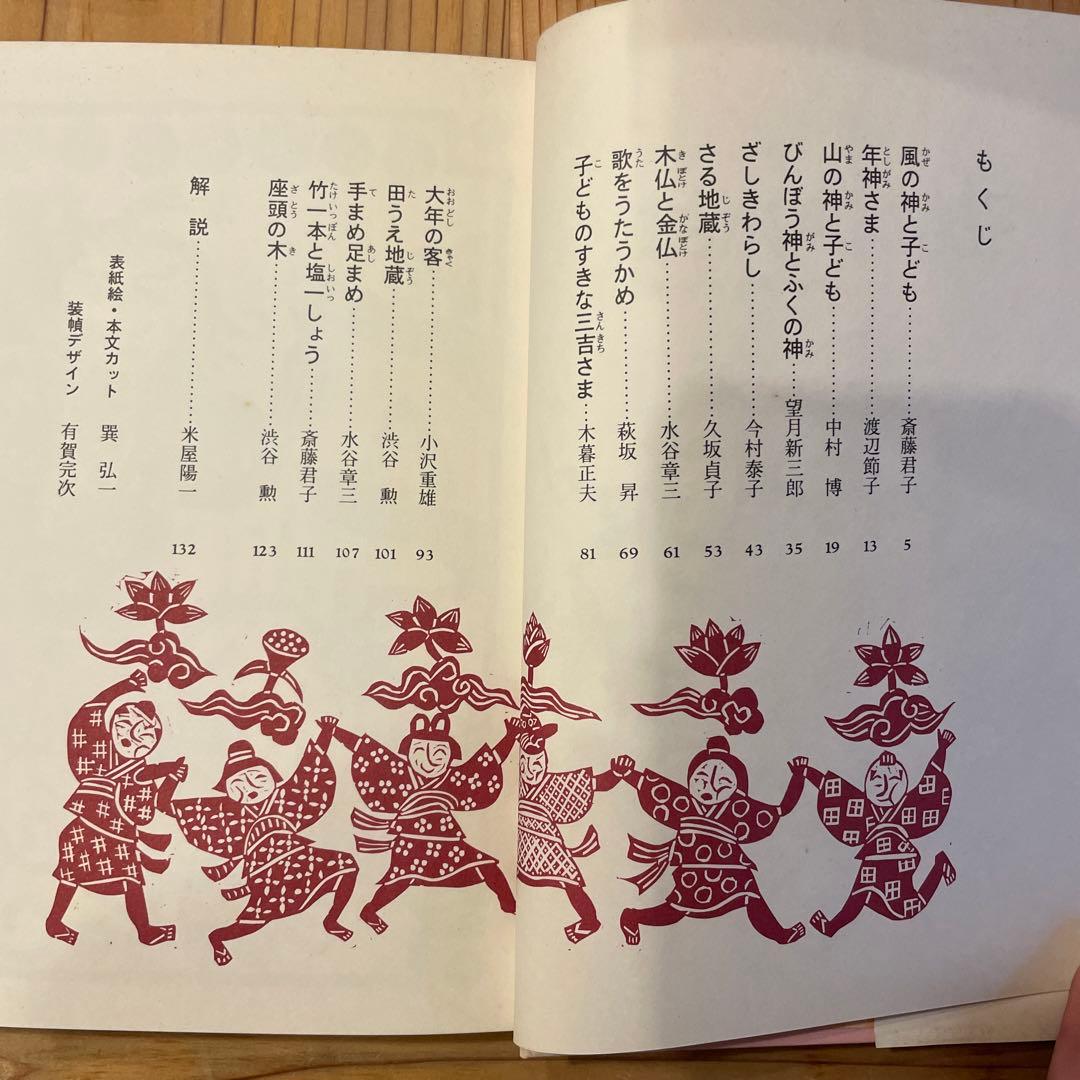 もくじ
風の神と子ども……………斎藤君子 5
年神さま……………渡辺節子 13
山の神と子ども……………中村 博 19
びんぼう神とふくの神……望月新三郎 35
ざしきわらし……………今村泰子 43
さる地蔵……………久坂貞子 53
木仏と金仏……………水谷章三 61
歌をうたうかめ……………萩坂 昇 69
子どものすきな三吉さま……木暮正夫 81
大年の客……………小沢重雄 93
田うえ地蔵……………渋谷 勲 101
手まめ足まめ……………水谷章三 107
竹一本と塩一しょう……………斎藤君子 111
座頭の木……………渋谷 勲 123
解説……………米屋陽一 132
表紙絵・本文カット 巽 弘一
装幀デザイン 有賀完次